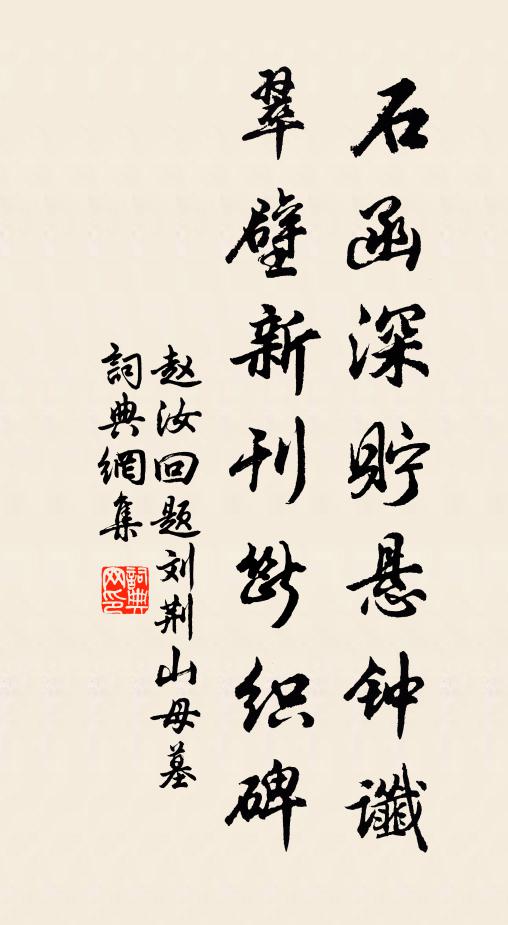 石函深貯悬钟谶
翠壁新刊断织碑
赵汝回题刘荆山母墓
詞典網集
詞典網印